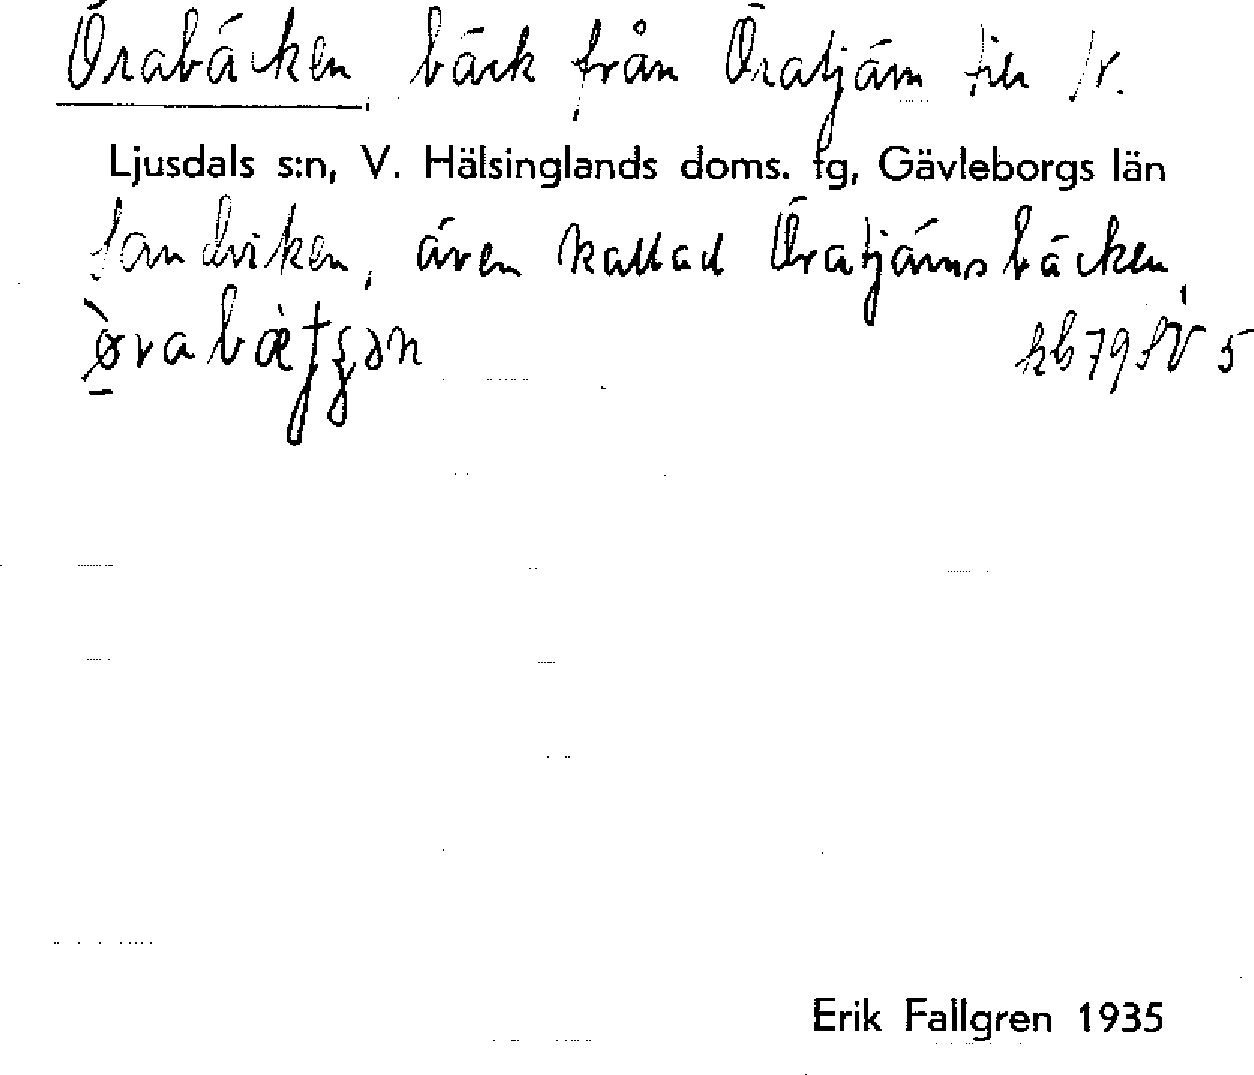 Örabäcken, bäck från Öratjärn till St.
Ljusdals s:n, V. Hälsinglands doms. tg, Gävleborgs län
Sandviken, även kallad Öratjärnsbäcken,
kb 79 SV 5
Erik Fallgren 1935